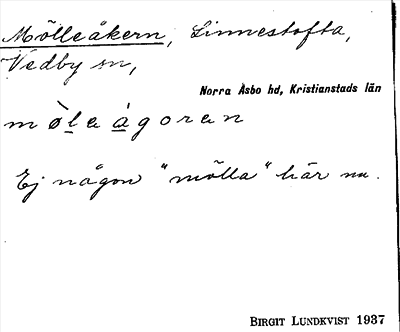 Mölleåkern, Linnestofta,
Vedby sn,
Norra Åsbo hd, Kristianstads län
mòleågoren
Ej någon "mölla" här nu.
BIRGIT LUNDKVIST 1937